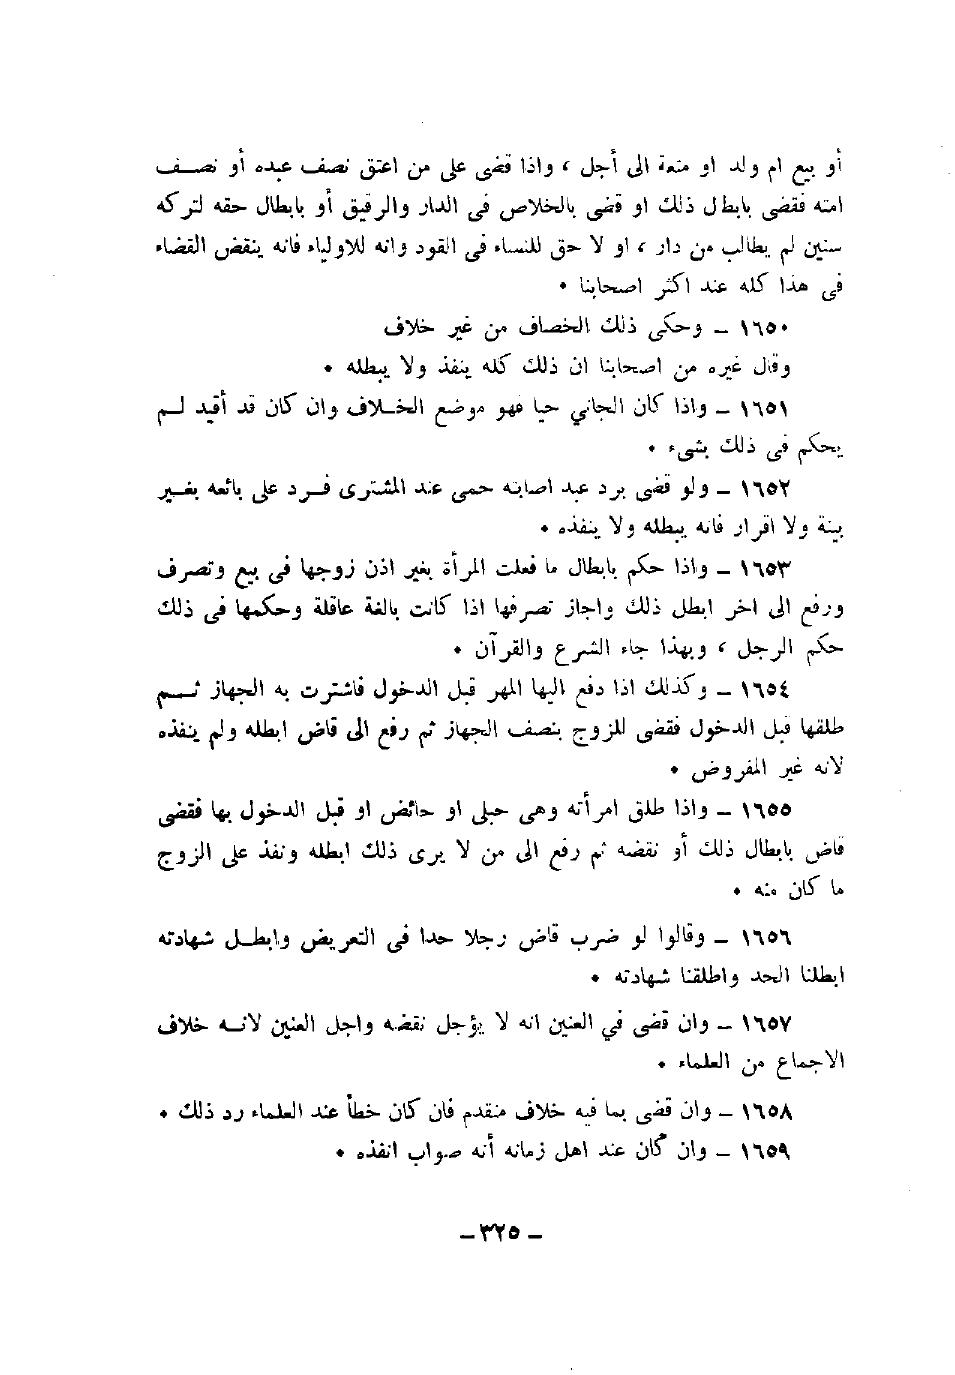 أو بيع ام ولد او متعة الى أجل ، واذا قضى على من اعتق نصف عبده أو نصف
امته فقضى بابطال ذلك او قضى بالخلاص فى الدار والرقيق أو بابطال حقه لتركه
سنين لم يطالب من دار ، او لا حق للنساء فى القود وانه للاولياء فانه ينقض القضاء
فى هذا كله عند اكثر اصحابنا •
١٦٥٠ – وحكى ذلك الخصاف من غير خلاف
وقال غيره من اصحابنا ان ذلك كله ينفذ ولا يبطله •
١٦٥١ – واذا كان الجاني حيا فهو موضع الخلاف وان كان قد أقيد لم
يحكم فى ذلك بشىء •
١٦٥٢ – ولو قضى برد عبد اصابته حمى عند المشترى فرد على بائعه بغير
بينة ولا اقرار فانه يبطله ولا ينفذه •
١٦٥٣ – واذا حكم بابطال ما فعلت المرأة بغير اذن زوجها فى بيع وتصرف
ورفع الى اخر ابطل ذلك واجاز تصرفها اذا كانت بالغة عاقلة وحكمها فى ذلك
حكم الرجل ، وبهذا جاء الشرع والقرآن •
١٦٥٤ – وكذلك اذا دفع اليها المهر قبل الدخول فاشترت به الجهاز ثم
طلقها قبل الدخول فقضى للزوج بنصف الجهاز ثم رفع الى قاض ابطله ولم ينفذه
لانه غير المفروض •
١٦٥٥ – واذا طلق امرأته وهى حبلى او حائض او قبل الدخول بها فقضى
قاض بابطال ذلك أو نقضه ثم رفع الى من لا يرى ذلك ابطله ونفذ على الزوج
ما كان منه •
١٦٥٦ – وقالوا لو ضرب قاض رجلا حدا فى التعريض وابطل شهادته
ابطلنا الحد واطلقنا شهادته •
١٦٥٧ – وان قضى في العنين انه لا يؤجل نقضه واجل العنين لانه خلاف
الاجماع من العلماء •
١٦٥٨ – وان قضى بما فيه خلاف متقدم فان كان خطأ عند العلماء رد ذلك •
١٦٥٩ – وان كان عند اهل زمانه أنه صواب انفذه •
– ٣٢٥ –